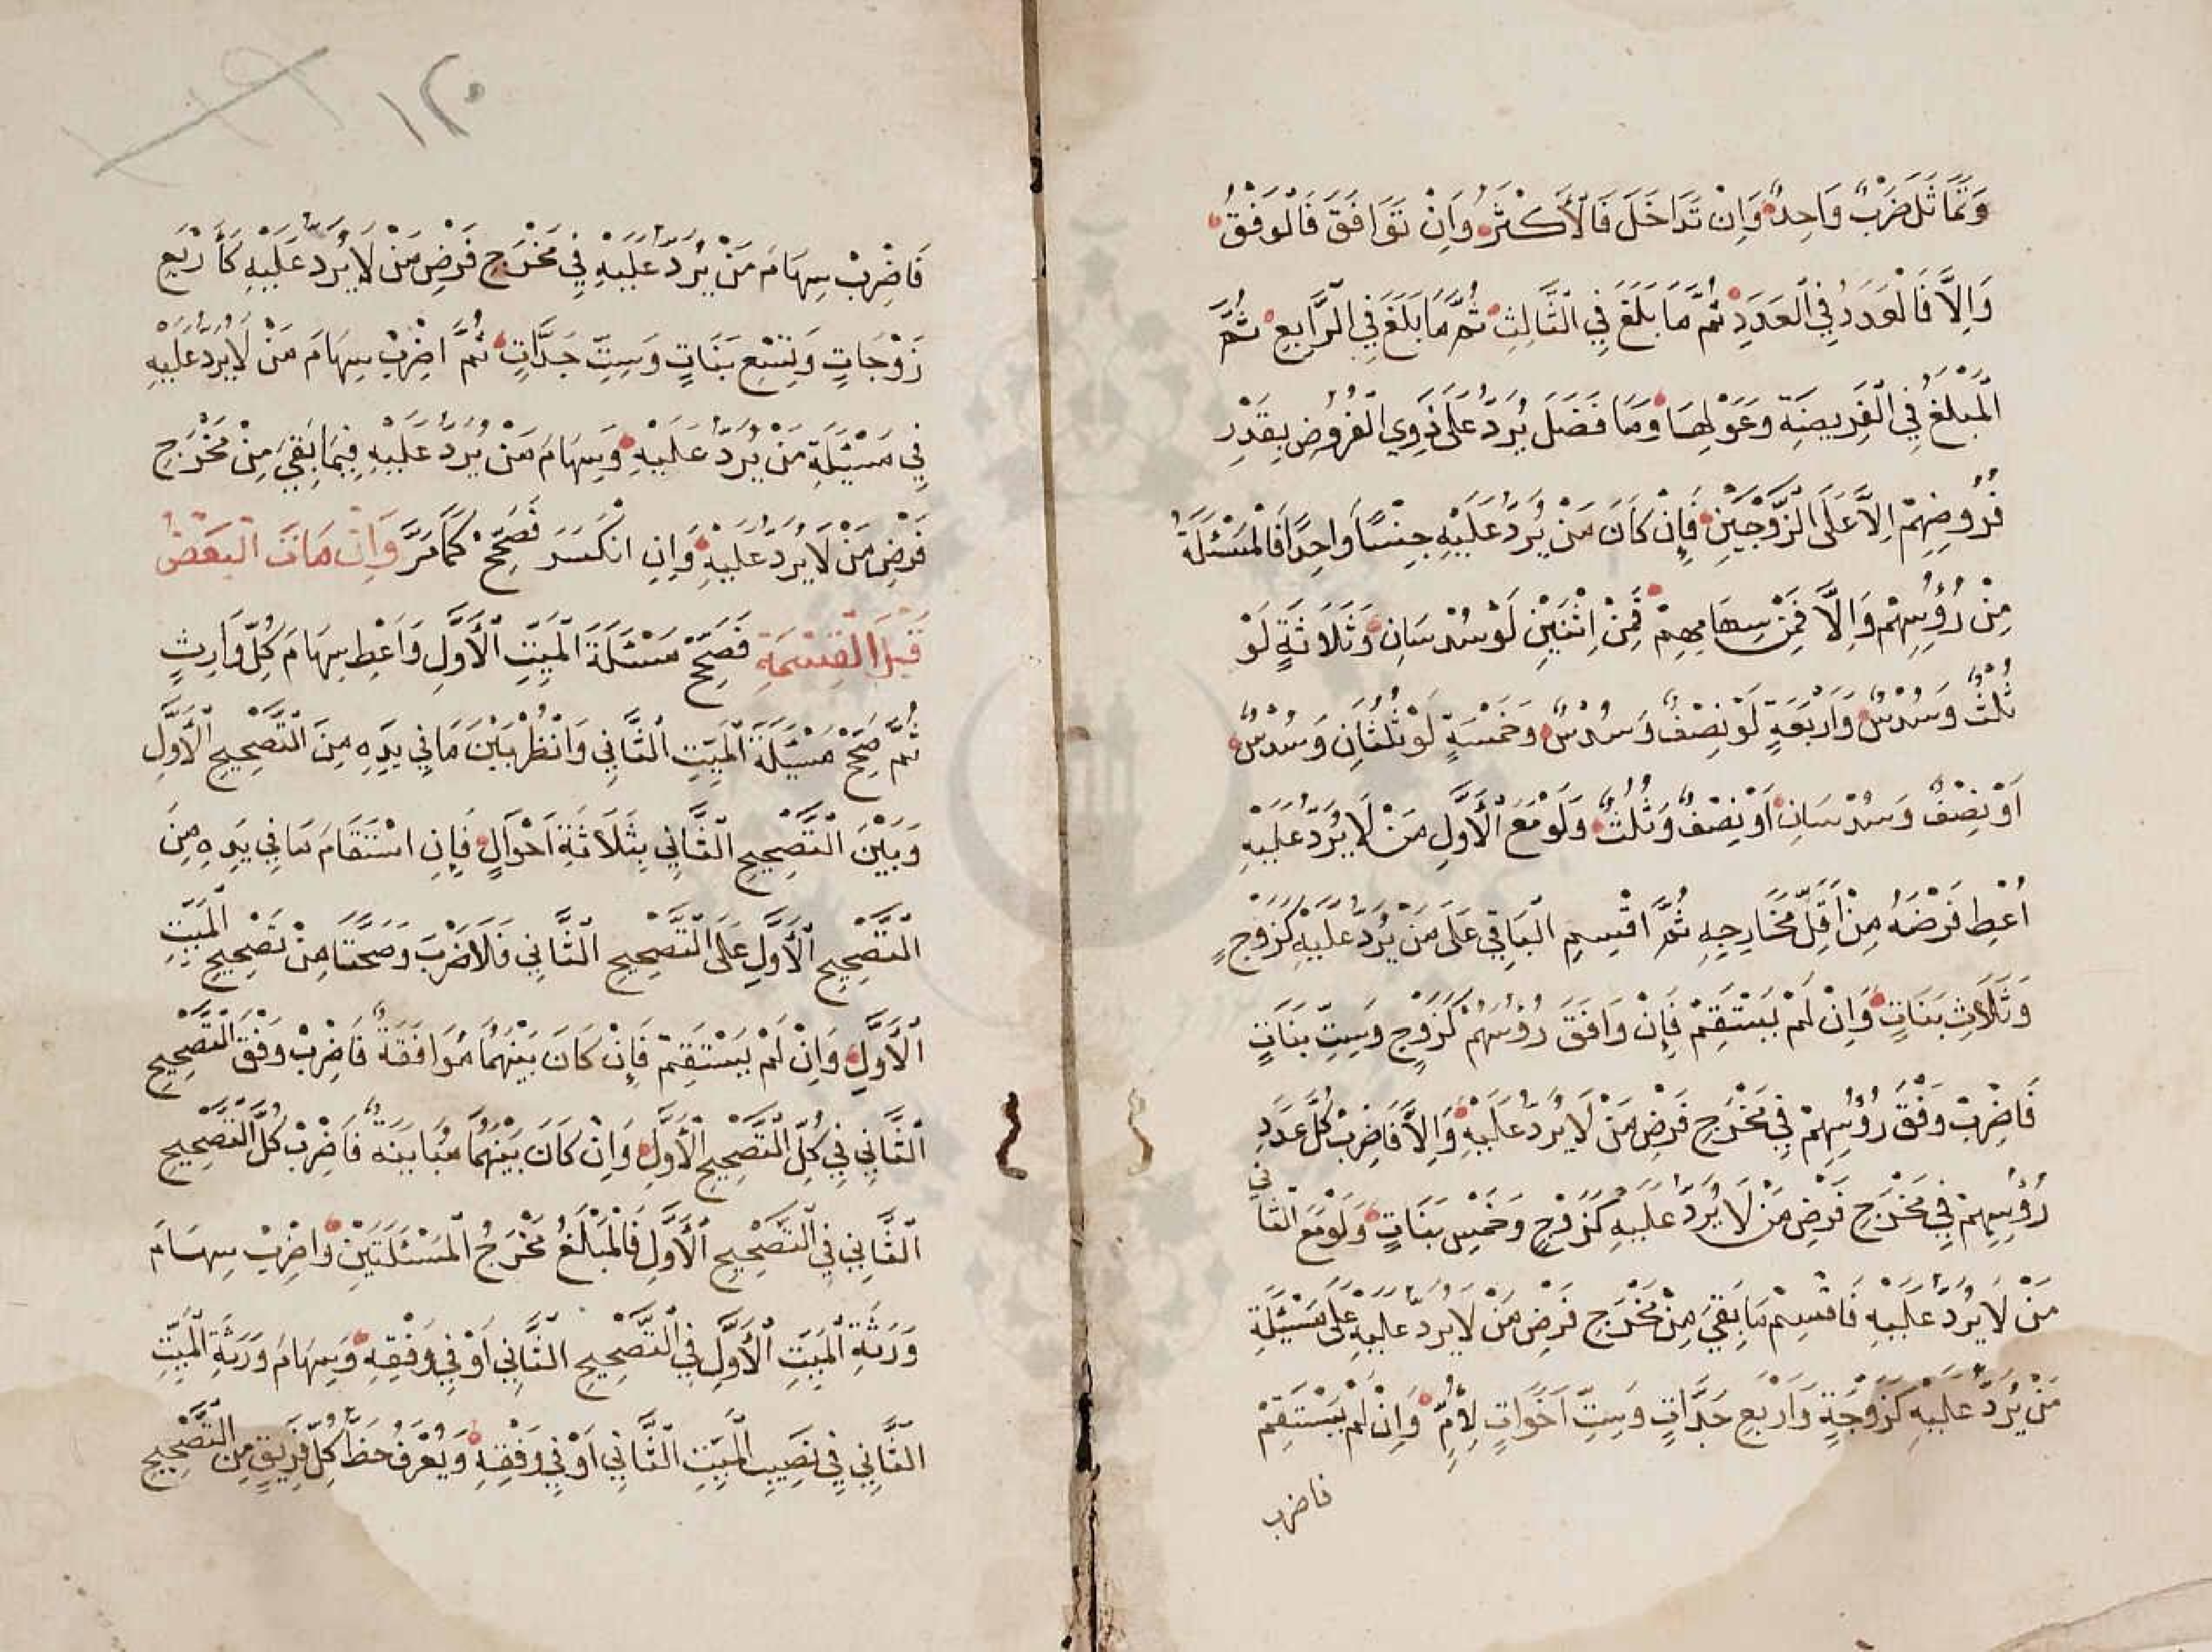 وَتَمَاثَلَ ضَرْبٌ وَاحِدٌ وَاِنْ تَدَاخَلَ فَالْأَكْثَرُ وَاِنْ تَوَافَقَ فَالْوَفْقُ
وَاِلَّا فَالْعَدَدُ فِي الْعَدَدِ ثُمَّ مَا بَلَغَ فِي الثَّالِثِ ثُمَّ مَا بَلَغَ فِي الرَّابِعِ ثُمَّ
الْمَبْلَغُ فِي الْفَرِيضَةِ وَعَوْلِهَا وَمَا فَضَلَ يُرَدُّ عَلَى ذَوِي الْفُرُوضِ بِقَدْرِ
فُرُوضِهِمْ اِلَّا عَلَى الزَّوْجَيْنِ فَاِنْ كَانَ مَنْ يُرَدُّ عَلَيْهِ جِنْسًا وَاحِدًا فَالْمَسْئَلَةُ
مِنْ رُؤُسِهِمْ وَاِلَّا فَمِنْ سِهَامِهِمْ فَمِنْ اِثْنَيْنِ لَوْ سُدْسَانِ وَثَلَاثَةٍ لَوْ
ثُلُثٌ وَسُدْسٌ وَاَرْبَعَةٍ لَوْ نِصْفٌ وَسُدْسٌ وَخَمْسَةٍ لَوْ ثُلُثَانِ وَسُدْسٌ
اَوْ نِصْفٌ وَسُدْسَانِ اَوْ نِصْفٌ وَثُلُثٌ وَلَوْ مَعَ الْأَوَّلِ مَنْ لَا يُرَدُّ عَلَيْهِ
اُعْطِ فَرْضَهُ مِنْ اَقَلِّ مَخَارِجِهِ ثُمَّ اقْسِمِ الْبَاقِي عَلَى مَنْ يُرَدُّ عَلَيْهِ كَزَوْجٍ
وَثَلَاثِ بَنَاتٍ وَاِنْ لَمْ يَسْتَقِمْ فَاِنْ وَافَقَ رُؤُسَهُمْ كَزَوْجٍ وَسِتِّ بَنَاتٍ
فَاضْرِبْ وَفْقَ رُؤُسِهِمْ فِي مَخْرَجِ فَرْضِ مَنْ لَا يُرَدُّ عَلَيْهِ وَاِلَّا فَاضْرِبْ كُلَّ عَدَدِ
رُؤُسِهِمْ فِي مَخْرَجِ فَرْضِ مَنْ لَا يُرَدُّ عَلَيْهِ كَزَوْجٍ وَخَمْسِ بَنَاتٍ وَلَوْ مَعَ الثَّانِي
مَنْ لَا يُرَدُّ عَلَيْهِ فَاقْسِمْ مَا بَقِيَ مِنْ مَخْرَجِ فَرْضِ مَنْ لَا يُرَدُّ عَلَيْهِ عَلَى مَسْئَلَةِ
مَنْ يُرَدُّ عَلَيْهِ كَزَوْجَةٍ وَاَرْبَعِ جَدَّاتٍ وَسِتِّ اَخَوَاتٍ لِأُمٍّ وَاِنْ لَمْ يَسْتَقِمْ
فاضرب
١٢٠
فَاضْرِبْ سِهَامَ مَنْ يُرَدُّ عَلَيْهِ فِي مَخْرَجِ فَرْضِ مَنْ لَا يُرَدُّ عَلَيْهِ كَأَرْبَعِ
زَوْجَاتٍ وَتِسْعِ بَنَاتٍ وَسِتِّ جَدَّاتٍ ثُمَّ اضْرِبْ سِهَامَ مَنْ لَا يُرَدُّ عَلَيْهِ
فِي مَسْئَلَةِ مَنْ يُرَدُّ عَلَيْهِ وَسِهَامَ مَنْ يُرَدُّ عَلَيْهِ فِيمَا بَقِيَ مِنْ مَخْرَجِ
فَرْضِ مَنْ لَا يُرَدُّ عَلَيْهِ وَاِنِ انْكَسَرَ فَصَحِّحْ كَمَا مَرَّ وَاِنْ مَاتَ الْبَعْضُ
قَبْلَ الْقِسْمَةِ فَصَحِّحْ مَسْئَلَةَ الْمَيِّتِ الْأَوَّلِ وَاَعْطِ سِهَامَ كُلِّ وَارِثٍ
ثُمَّ صَحِّحْ مَسْئَلَةَ الْمَيِّتِ الثَّانِي وَانْظُرْ بَيْنَ مَا فِي يَدِهِ مِنَ التَّصْحِيحِ الْأَوَّلِ
وَبَيْنَ التَّصْحِيحِ الثَّانِي بِثَلَاثَةِ اَحْوَالٍ فَاِنِ اسْتَقَامَ مَا فِي يَدِهِ مِنَ
التَّصْحِيحِ الْأَوَّلِ عَلَى التَّصْحِيحِ الثَّانِي فَلَا ضَرْبَ وَصَحَّتَا مِنْ تَصْحِيحِ الْمَيِّتِ
الْأَوَّلِ وَاِنْ لَمْ يَسْتَقِمْ فَاِنْ كَانَ بَيْنَهُمَا مُوَافَقَةٌ فَاضْرِبْ وَفْقَ التَّصْحِيحِ
الثَّانِي فِي كُلِّ التَّصْحِيحِ الْأَوَّلِ وَاِنْ كَانَ بَيْنَهُمَا مُبَايَنَةٌ فَاضْرِبْ كُلَّ التَّصْحِيحِ
الثَّانِي فِي التَّصْحِيحِ الْأَوَّلِ فَالْمَبْلَغُ مَخْرَجُ الْمَسْئَلَتَيْنِ وَاضْرِبْ سِهَامَ
وَرَثَةِ الْمَيِّتِ الْأَوَّلِ فِي التَّصْحِيحِ الثَّانِي اَوْ فِي وَفْقِهِ وَسِهَامَ وَرَثَةِ الْمَيِّتِ
الثَّانِي فِي نَصِيبِ الْمَيِّتِ الثَّانِي اَوْ فِي وَفْقِهِ وَيُعْرَفُ حَظُّ كُلِّ فَرِيقٍ مِنَ التَّصْحِيحِ